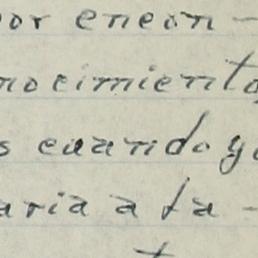 por encon-
nocimiento
s cuando y
aria a la -